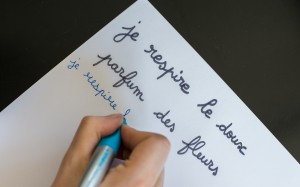 je respire le doux
parfum des fleurs
je respire l